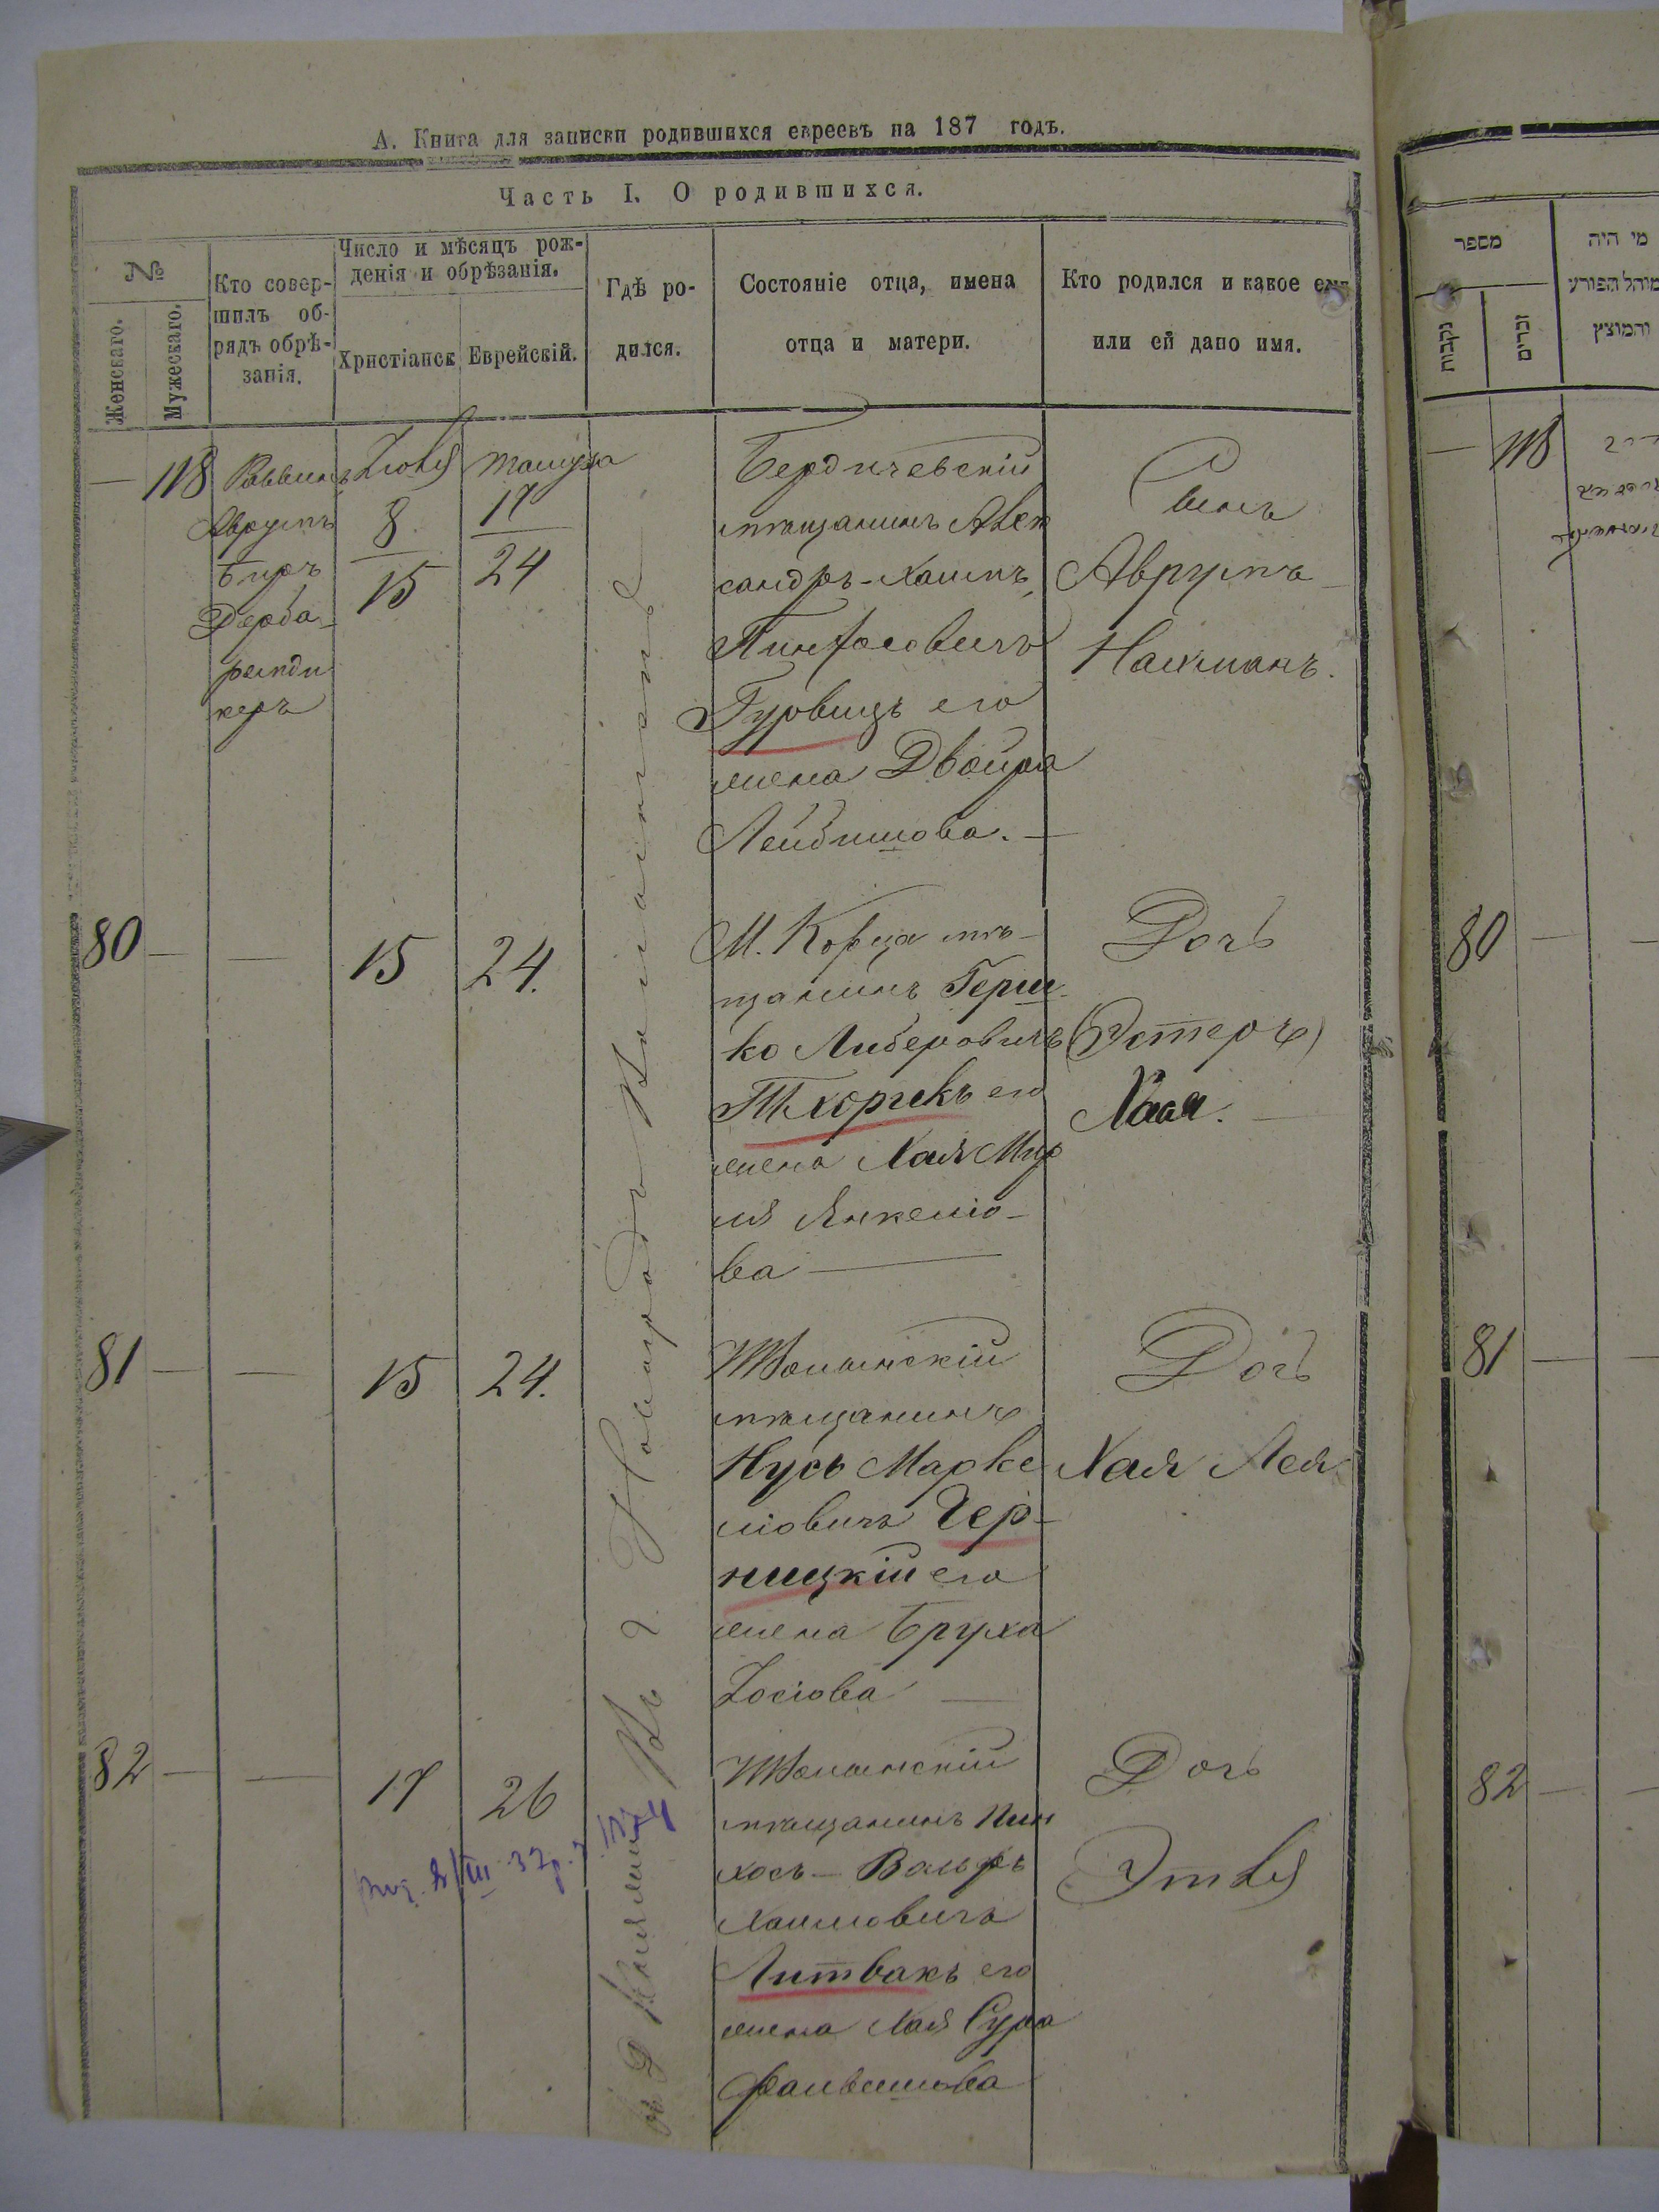 А. Книга для записки родившихся евреевъ на 187 годъ.
Часть I. О родившихся.
№
Женскаго.
Мужескаго.
Кто совер-
шилъ об-
рядъ обрѣ-
занія.
Число и мѣсяцъ рож-
денія и обрѣзанія.
Христіанск
Еврейскій.
Гдѣ ро-
дился.
Состояніе отца, имена
отца и матери.
Кто родился и какое ему
или ей дано имя.
— 118
Раввинъ
Аврумъ
Беръ
Дерба-
ремди
керъ
Іюля
8
15
Тамуза
17
24
Бердичевскій
мѣщанинъ Алек
сандръ-Хаимъ
Пинхасовичъ
Гуровицъ его
жена Двойра
Лейбишова. —
Сынъ
Аврумъ
Нахманъ.
80 — —
15
24.
М. Корца мѣ-
щанинъ Герш-
ко Либеровичъ
Тхоржкъ его
жена Хая Мир
ля Янкелю-
ва —
Дочь
(Эстеръ)
Хая. —
81 — —
15
24.
Жолынскій
мѣщанинъ
Нусь Марке
ліовичъ Чер-
ницкій его
жена Бруха
Іосіова —
Дочь
Хая Лея
82 — —
17
26
мѣщанинъ Пин
хосъ- Вольфъ
Хаимовичъ
Литвакъ его
жена Хая Сура
Файвишова
Дочь
Этля
מספר
נקבות
זכרים
מי היה
מוהל הפורע
והמוצץ
— 118
80 — —
81 — —
82 — —